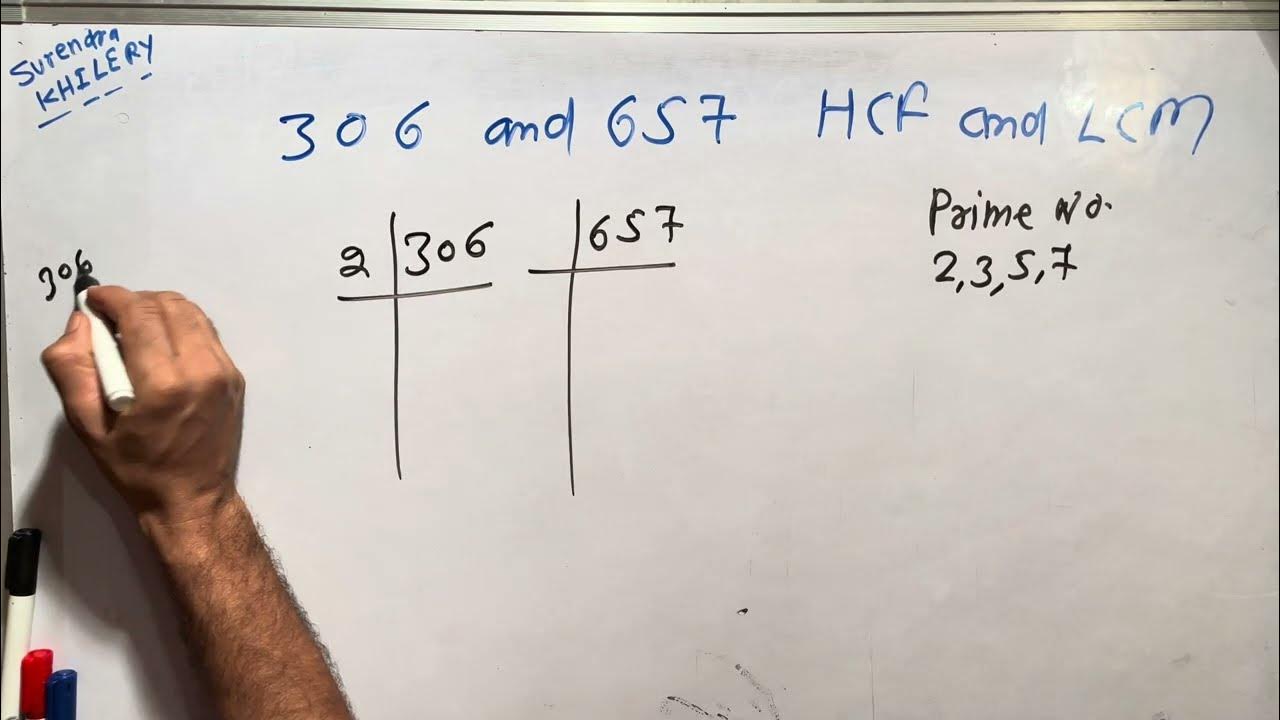 Surendra
KHILERY
306 and 657 HCF and LCM
Prime No.
2,3,5,7
2 306
657
306